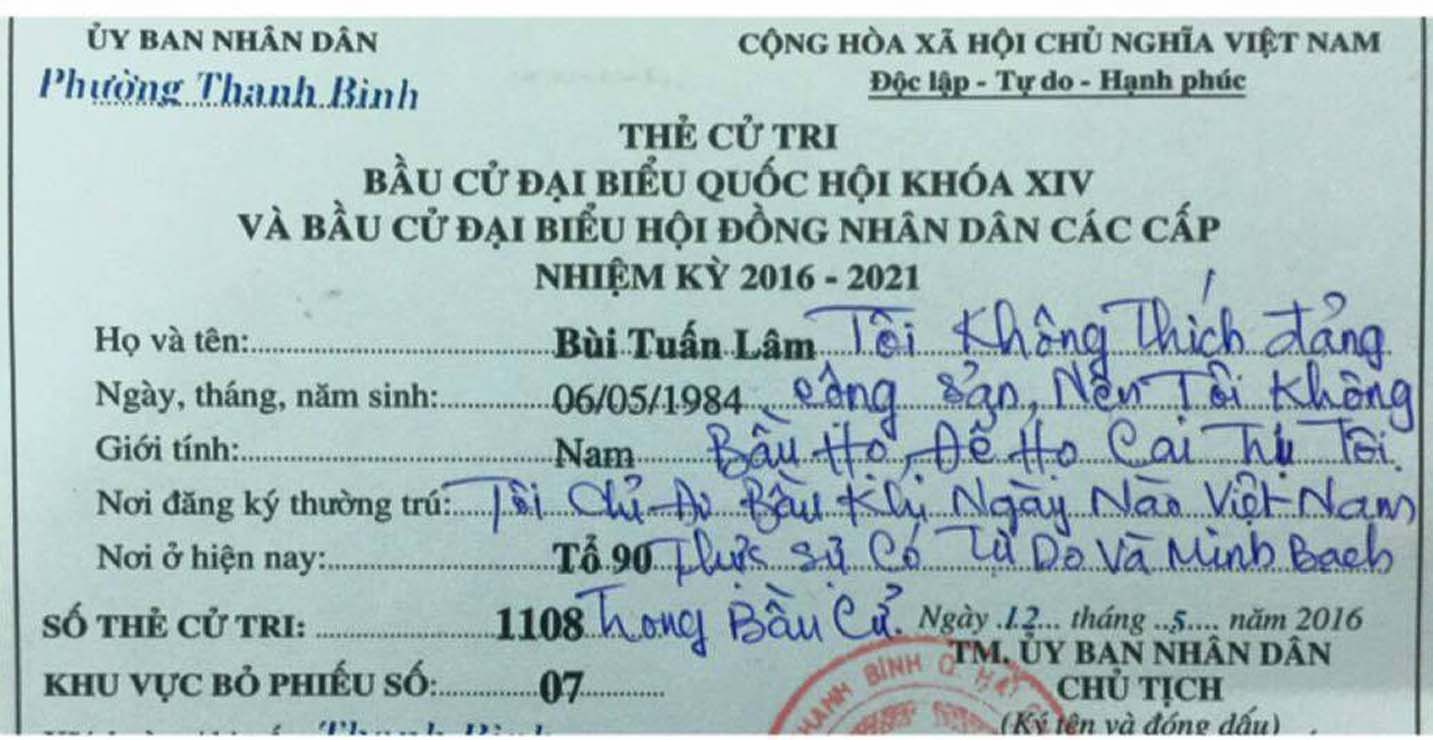 ỦY BAN NHÂN DÂN
Phường Thanh Bình
CỘNG HÒA XÃ HỘI CHỦ NGHĨA VIỆT NAM
Độc lập - Tự do - Hạnh phúc
THẺ CỬ TRI
BẦU CỬ ĐẠI BIỂU QUỐC HỘI KHÓA XIV
VÀ BẦU CỬ ĐẠI BIỂU HỘI ĐỒNG NHÂN DÂN CÁC CẤP
NHIỆM KỲ 2016 - 2021
Họ và tên: Bùi Tuấn Lâm Tôi Không Thích đảng
Ngày, tháng, năm sinh: 06/05/1984 cộng sản, Nên Tôi Không
Giới tính: Nam Bầu Họ, Để Họ Cai Trị Tôi.
Nơi đăng ký thường trú: Tôi Chỉ Đi Bầu Khi Ngày Nào Việt Nam
Nơi ở hiện nay: Tổ 90 Thực Sự Có Tự Do Và Minh Bạch
SỐ THẺ CỬ TRI: 1108 Trong Bầu Cử. Ngày 12 tháng 5 năm 2016
TM. ỦY BAN NHÂN DÂN
KHU VỰC BỎ PHIẾU SỐ: 07 CHỦ TỊCH
(Ký tên và đóng dấu)
THANH BÌNH Q. HẢI
Thanh Bình